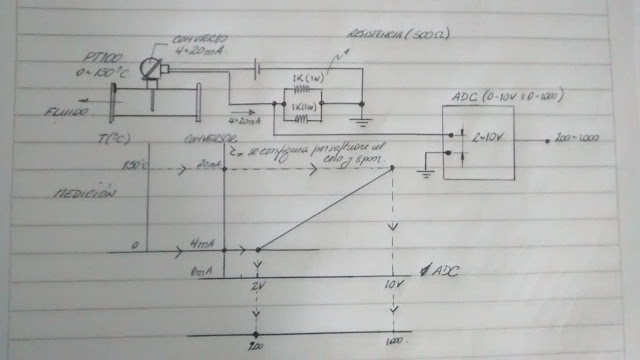 CONVERSO
4÷20mA.
RESISTENCIA (500Ω)
PT100
0÷150°C
1K(1W)
1K(1W)
ADC (0-10V=0-1000)
FLUIDO
4÷20mA
2÷10V
200÷1000
T(°C)
CONVERSOR
se configura por software el
cero y span.
150°C
20mA
MEDICIÓN
0
4mA
0mA
2V
10V
ADC
200
1000.